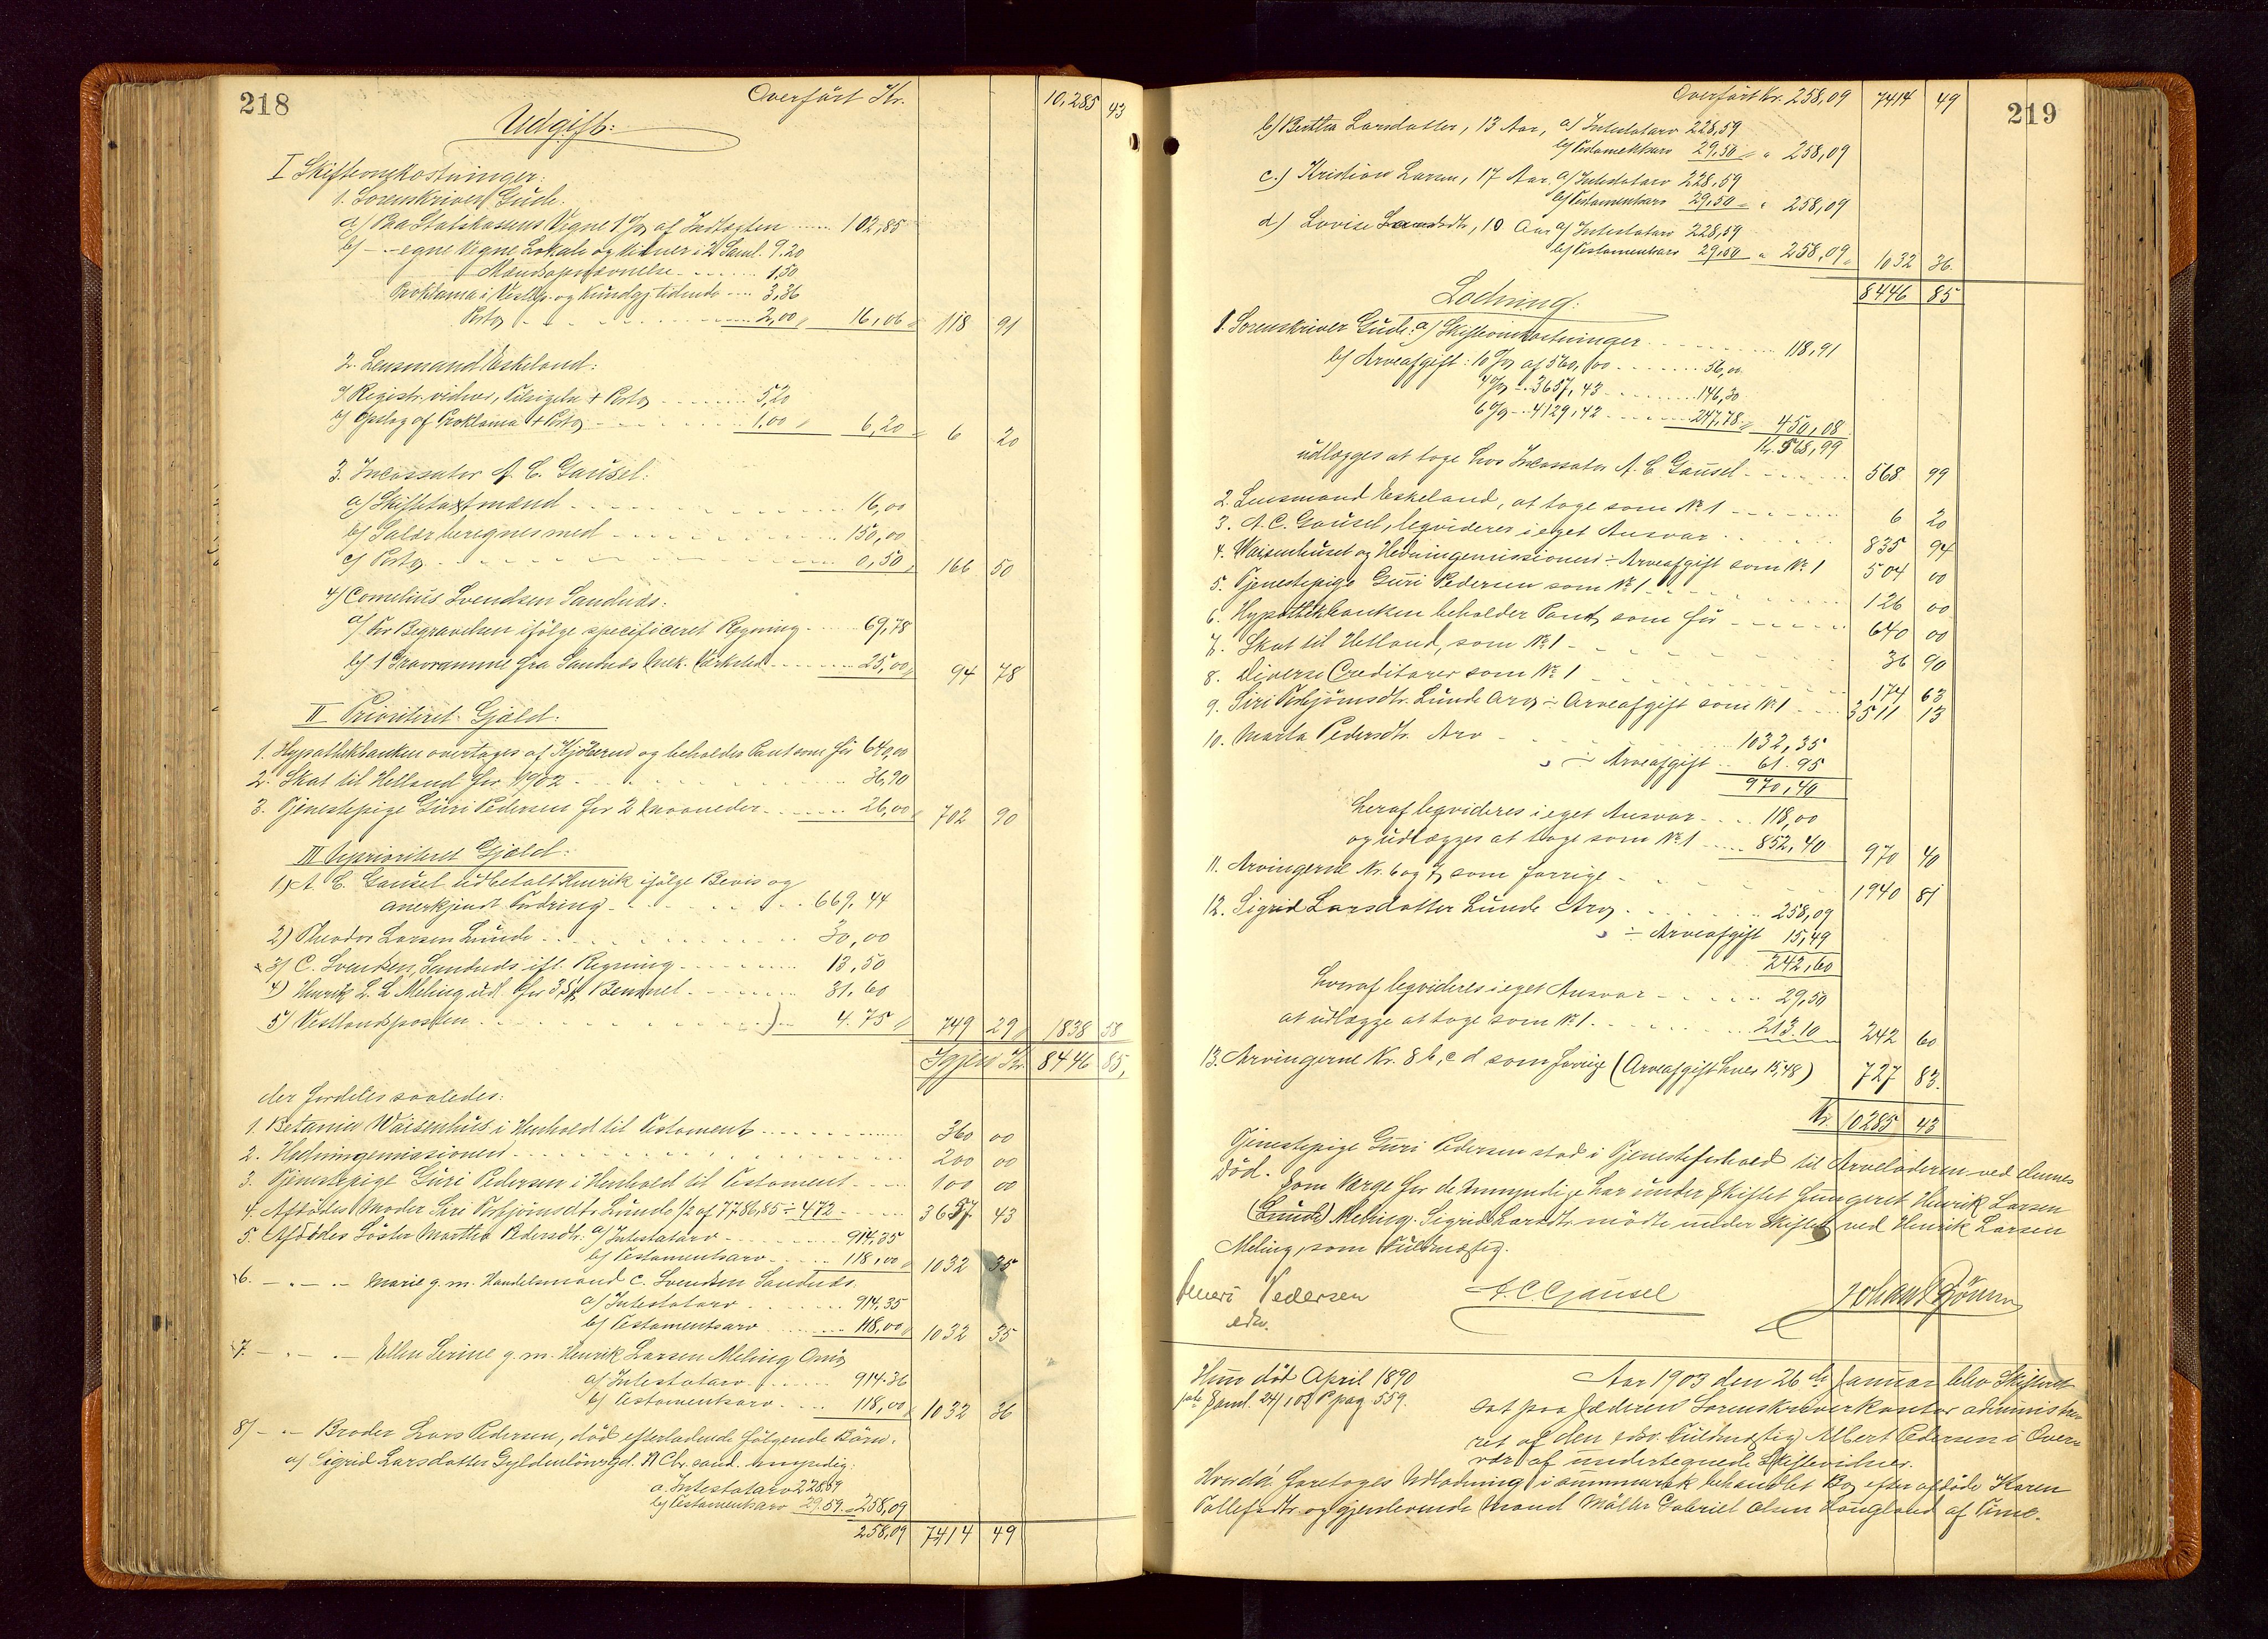 218
Overført Kr. 10,285 43
Udgift:
I Skifteomkostninger:
1. Sorenskriver Gude:
a) Paa Statskassens Vegne 1% af Indtægten 102,85
b) - egne Vegne Lokale og Vidner i 2 Saml. 9.20
Mændsopnævnelse 1,50
Proklama i Vestlp. og Kundgj.tidende 3,36
Porto 2,00 16,06 118 91
2. Lensmand Eskeland:
a) Registr. vidner, Tilsigeln + Porto 5,20
b) Opslag af Proklama + Porto 1,00 6,20 6 20
3. Incassator A. C. Gausel:
a) Skiftetaxtmænd 16,00
b) Salær beregnes med 150,00
c) Porto 0,50 166 50
4) Cornelius Svendsen Sandnæs:
a) For Begravelsen ifølge specificeret Regning 69,78
b) 1 Gravramme fra Sandnæs Mek. Værksted 25,00 94 78
II Prioriteret Gjæld:
1. Hypothekbanken overtages af Kjøberen og beholder Pant som før 640,00
2. Skat til Hetland for 1902 36,90
3. Tjenestepige Guri Pedersen for 2 maaneder 26,00 702 90
III Uprioriteret Gjæld:
1) A. C. Gausel udbetalt Henrik ifølge Bevis og
anerkjendt Fordring 669,44
2) Theodor Larsen Lunde 30,00
3) C. Svendsen, Sandnæs ifl. Regning 13,50
4) Henrik L. L. Meling udl. for 3 St. Benmel 31.60
5) Vestlandsposten 4.75 749 29 1838 58
Igjen Kr. 8446 85,
der fordeles saaledes:
1. Betania Waisenhus i Henhold til Testament 360 00
2. Hedningemissionen 200 00
3. Tjenestepige Guri Pedersen i Henhold til Testament 100 00
4. Afdødes Moder Siri Torbjørnsdtr. Lunde 1/2 af 7786,85 ÷ 472 3657 43
5. Afdødes Søster Martha Pedersdtr. a) Intestatarv 914,35
b) Testamentsarv 118,00 1032 35
6. - " - - Marie g. m. Handelsmand C. Svendsen Sandnæs
a) Intestatarv 914.35
b) Testamentsarv 118,00 1032 35
7. - " - - Ellen Serine g. m. Henrik Larsen Meling
a) Intestatarv 914.36
b) Testamentsarv 118,00 1032 36
8) - " - Broder Lars Pedersen, død efterladende følgende Børn:
a) Sigrid Larsdatter Gyldenløvesgd. Chr.sand. myndig:
a. Intestatarv 228.59
b) Testamentsarv 29.59 258,09
258,09 7414 49
219
Overført Kr. 258,09 7414 49
b) Bertha Larsdatter, 13 Aar, a) Intestatarv 228,59
b) Testamentsarv 29,50 " 258,09
c.) Kristian Larsen, 17 Aar. a) Intestatarv 228,59
b) Testamentsarv 29,50 " 258,09
d) Lovise Larsdtr, 10 Aar a) Intestatarv 228,59
b) Testamentsarv 29,50 " 258,09 1032 36
8446 85
Lodning:
1. Sorenskriver Gude: a) Skifteomkostninger 118,91
b) Arveafgift: 10% af 560,00 56,00
4% - 3657,43 146,30
6% - 4129,42 247,78 450,08
Kr. 568,99
udlægges at tage hos Incassator A. C. Gausel 568 99
2. Lensmand Eskeland, at tage som № 1 6 20
3. A. C. Gausel, leqviderer i eget Ansvar 835 94
4. Waisenhuset og Hedningemissionen ÷ Arveafgift som № 1 504 00
5. Tjenestepige Guri Pedersen som № 1 126 00
6. Hypothekbanken beholder Pant som før 640 00
7. Skat til Hetland, som № 1 36 90
8. Diverse Creditorer som № 1 174 63
9. Siri Torbjørnsdtr. Lunde Arv ÷ Arveafgift som № 1 3511 13
10. Marta Pedersdtr. Arv 1032,35
÷ Arveafgift 61.95
970,40
heraf leqvideres i eget Ansvar 118,00
og udlægges at tage som № 1 852,40 970 40
11. Arvingerne Nr. 6 og 7 som forrige 1940 81
12. Sigrid Larsdatter Lunde Arv 258,09
÷ Arveafgift 15,49
242,60
hvoraf leqvideres i eget Ansvar 29,50
at udlægge at tage som № 1. 213.10 242 60
13. Arvingerne Nr. 8 b, c d som forrige (Arveafgift hver 15,48) 727 83.
Kr. 10285 43
Tjenestepige Guri Pedersen stod i Tjenesteforhold til Arveladeren ved dennes
Død. Som Værge for de Umyndige har under Skiftet fungeret Henrik Larsen
(Lunde) Meling. Sigrid Larsdtr. mødte under Skiftet ved Henrik Larsen
Meling, som Fuldmægtig.
Pedersen A. C. Gausel
edv.
Hun død April 1890
jvfr. Saml. 24/10 P pag 559.
Aar 1903 den 26de Januar blev Skifteret
sat paa Jæderens Sorenskriverkontor administre-
ret af den edsv. Fuldmægtig Albert Pedersen i Over-
vær af undertegnede Skiftevidner.
Hvorda: foretoges Udlodning i summarisk behandlet Bo efter afdøde Karen
Tollefsdtr. og gjenlevende Mand Møller Gabriel Olsen Haugland af Time.